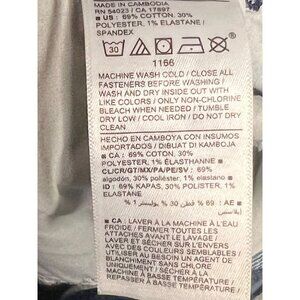 MADE IN CAMBODIA
RN 54023 / CA 17897
- US : 69% COTTON, 30%
POLYESTER, 1% ELASTANE /
SPANDEX
30
1166
MACHINE WASH COLD / CLOSE ALL
FASTENERS BEFORE WASHING /
WASH AND DRY INSIDE OUT WITH
LIKE COLORS / ONLY NON-CHLORINE
BLEACH WHEN NEEDED / TUMBLE
DRY LOW / COOL IRON / DO NOT DRY
CLEAN
HECHO EN CAMBOYA CON INSUMOS
IMPORTADOS / DIBUAT DI KAMBOJA
- CA : 69% COTON, 30%
POLYESTER, 1% ÉLASTHANNE
- CL/CR/GT/MX/PA/PE/SV : 69%
algodón, 30% poliéster, 1% elastano
- ID : 69% KAPAS, 30% POLISTER, 1%
ELASTANE
- AE : 69 % قطن 30 % بوليستر 1 %
إيلاستين
- CA : LAVER À LA MACHINE À L'EAU
FROIDE / FERMER TOUTES LES
ATTACHES AVANT LE LAVAGE /
LAVER ET SÉCHER SUR L'ENVERS
AVEC DES COULEURS SIMILAIRES /
UTILISER UN AGENT DE
BLANCHIMENT SANS CHLORE
SEULEMENT AU BESOIN / SÉCHER
À LA MACHINE À BASSE
REPASSER À BASSE TEMPÉRATURE /